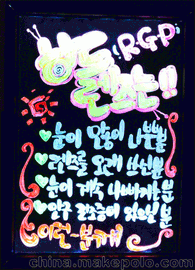 하드 RGP
렌즈는!!
눈이 많이 나쁘신분
렌즈를 오래 쓰신분
눈이 계속 나빠지는분
안구 건조증이 있으신분
이런-분께!!
www.chinamakepolo.com